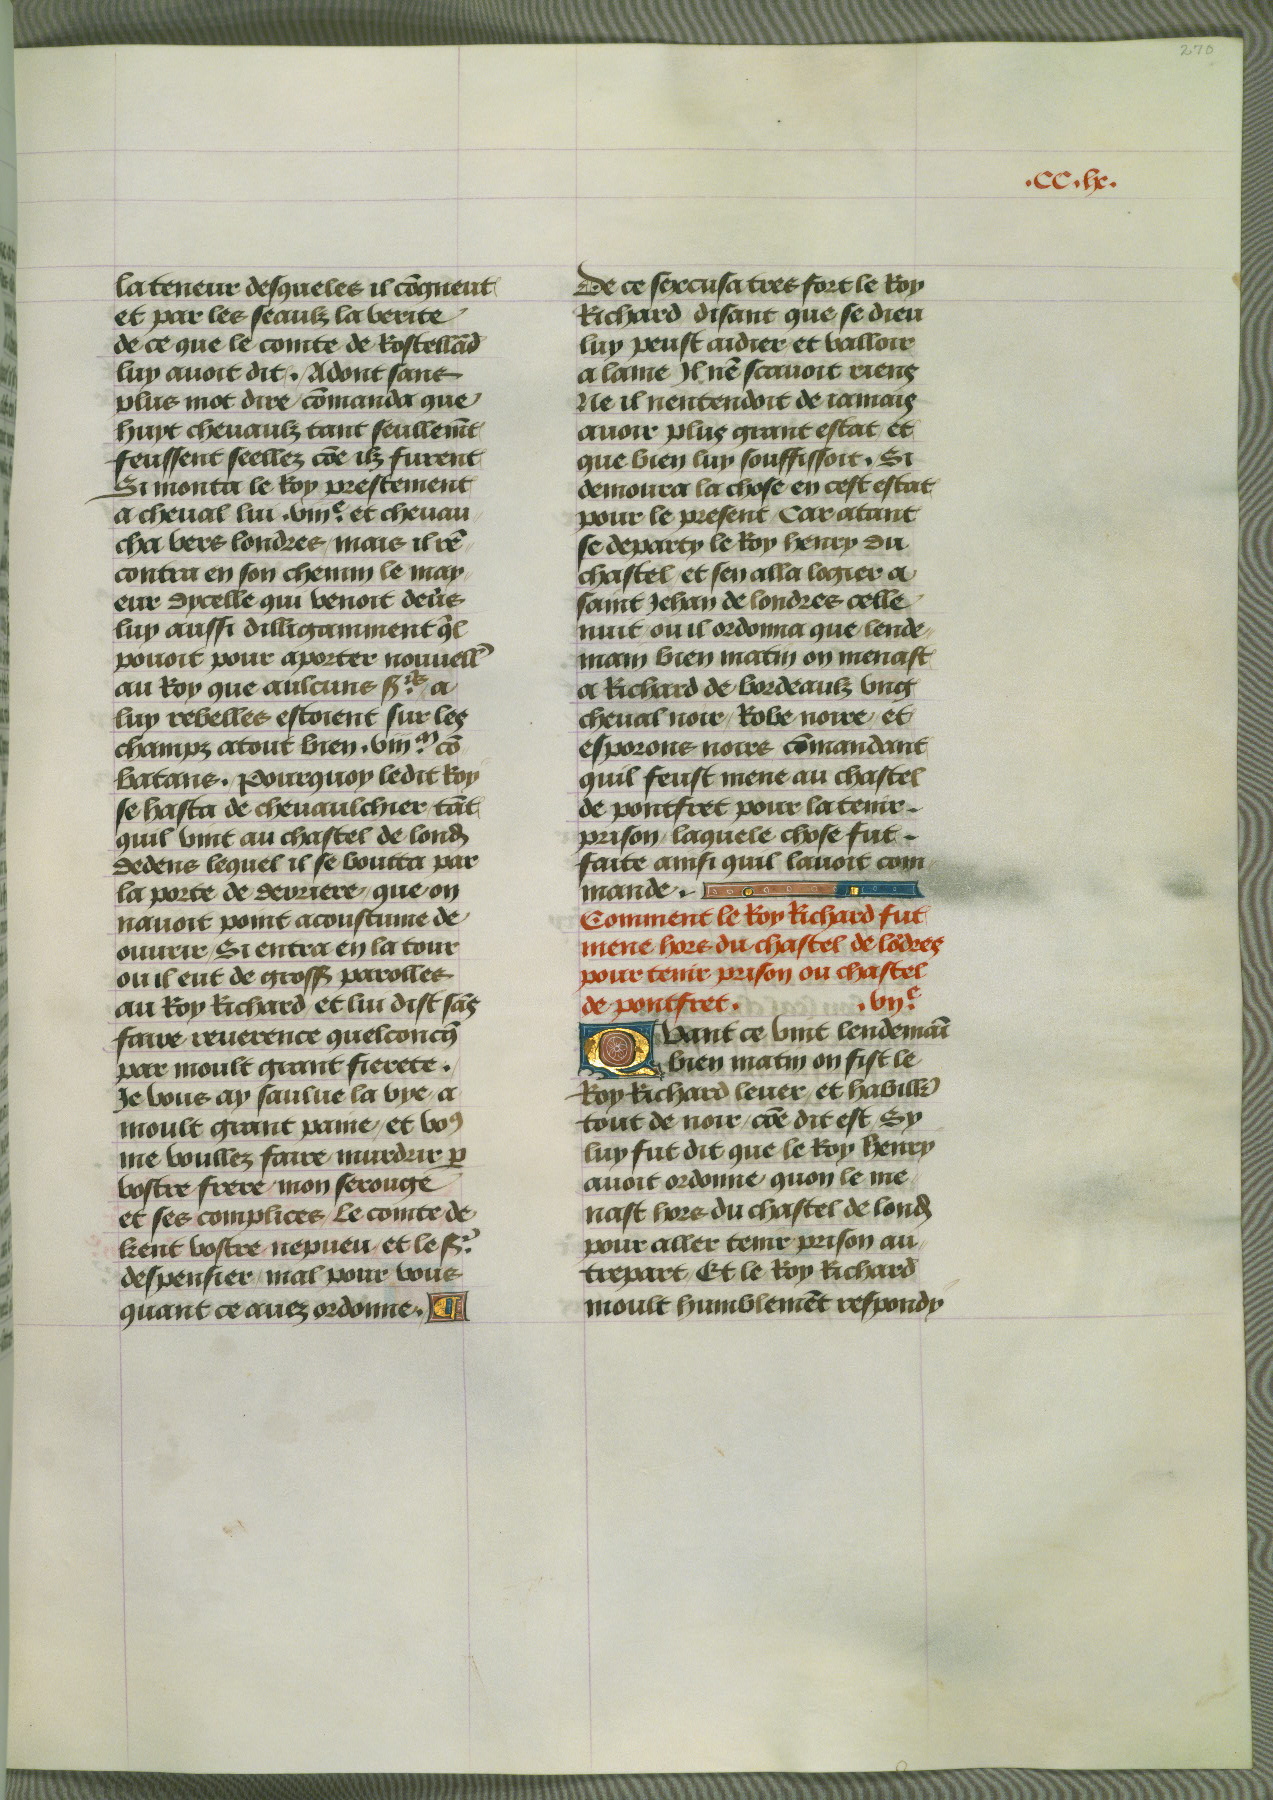 270
.CC.lx.
la teneur desqueles il cōgneut
et par les seaulz la verite
de ce que le comte de Rostellād
luy auoit dit. Adont sans
plus mot dire cōmanda que
huyt cheuaulz tant seullemēt
feussent seellez cōe ilz furent
Si monta le Roy prestement
a cheual lui .viiiᵉ. et cheuau
cha vers londres mais il rē
contra en son chemin le may
eur dycelle qui venoit deūs
luy aussi dilligamment q̄l
pouoit pour aporter nouuell'
au Roy que aulcuns sʳˢ a
luy rebelles estoient sur les
champz atout bien .viiiᵐ. cō
batans. Pourquoy ledit Roy
se hasta de cheuaulchier tāt
quil vint au chastel de lond̄
dedens lequel il se bouta par
la porte de derriere que on
nauoit point acoustume de
ouurir Si entra en la tour
ou il eut de gross' parolles
au Roy Richard et lui dist sās
faire reuerence quelconcq̄
par moult grant fierete.
Je vous ay saulue la vye a
moult grant paine et voꝰ
me voullez faire murdrir ꝑ
vostre frere mon serouge
et ses complices Le comte de
kent vostre nepueu et le sʳ.
despensier mal pour vous
quant ce auez ordonne.
De ce sexcusa tres fort le Roy
Richard disant que se dieu
luy peust aidier et valloir
a lame Il nē scauoit riens
Ne il nentendoit de iamais
auoir plus grant estat et
que bien luy souffissoit. Si
demoura la chose en cest estat
pour le present Car atant
se departy le Roy henry du
chastel et sen alla logier a
saint Jehan de londres celle
nuit ou il ordonna que lende
main bien matin on menast
a Richard de bordeaulz vng
cheual noir Robe noire et
esporons noirs cōmandant
quil feust mene au chastel
de pontfret pour la tenir
prison laquele chose fut
faite ainsi quil lauoit com
mande.
Comment le Roy Richard fut
mene hors du chastel de lōdres
pour tenir prison ou chastel
de pontfret. .viiᵉ.
Quant ce vint lendemāī
bien matin on fist le
Roy Richard leuer et habill'
tout de noir cōe dit est Sy
luy fut dit que le Roy henry
auoit ordonne quon le me
nast hors du chastel de lond̄
pour aller tenir prison au
trepart Et le Roy Richard
moult humblemēt respondy